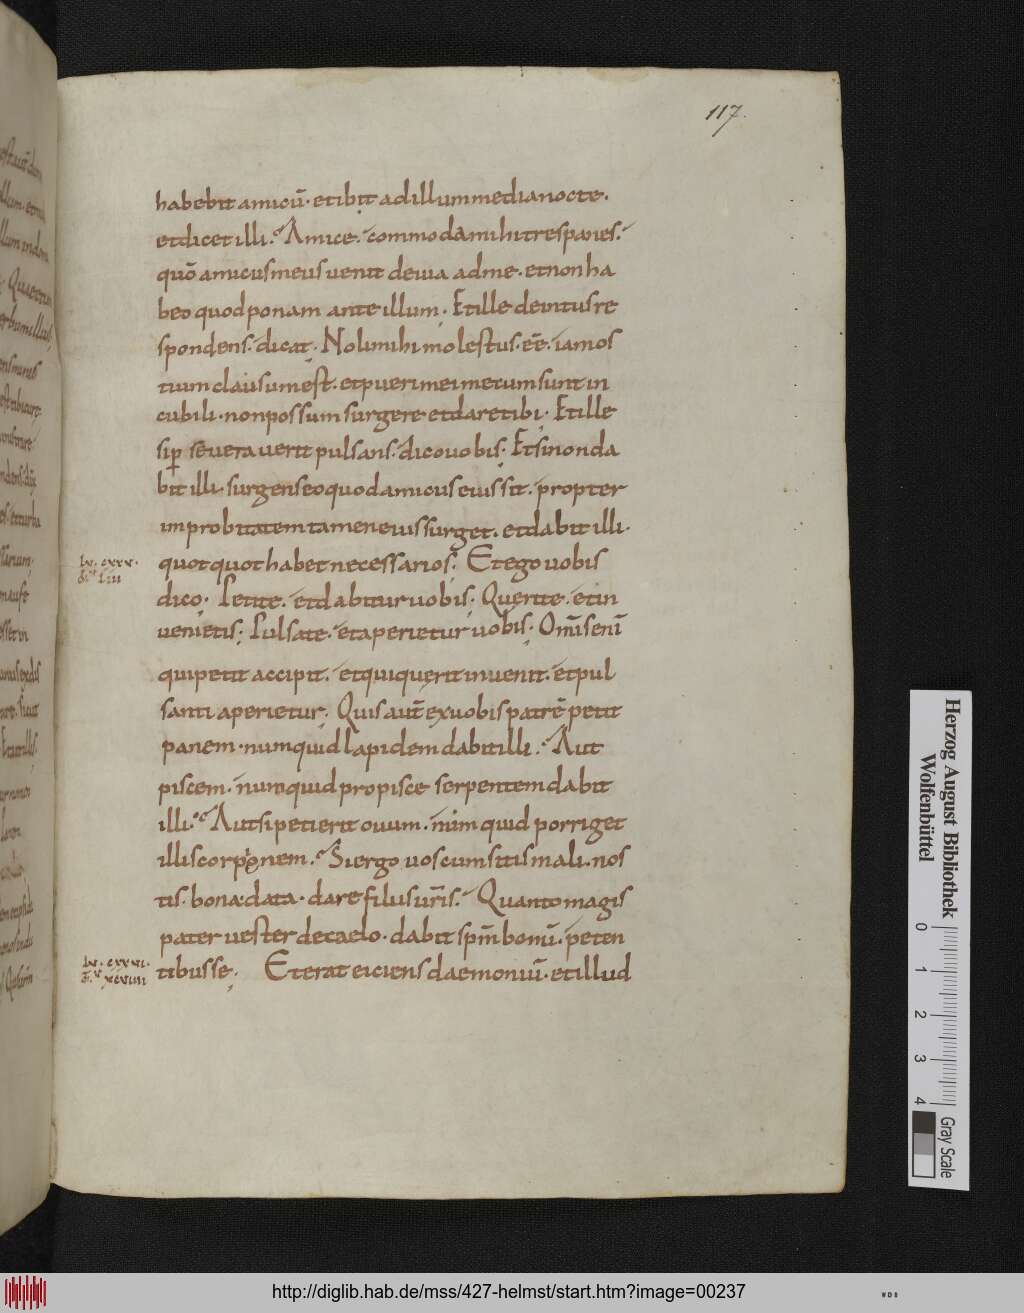 117.
habebit amicū· et ibit ad illum media nocte·
et dicet illi· Amice· commoda mihi tres panes·
quō amicus meus uenit de uia ad me· et non ha
beo quod ponam ante illum· Et ille de intus re
spondens· dicat· Noli mihi molestus· eē· iam os
tium clausum est· et pueri mei mecum sunt in
cubili· non possum surgere et dare tibi· Et ille
si ꝑseuerauerit pulsans· dico uobis· Et si non da
bit illi· surgens eo quod amicus eius sit· propter
improbitatem tamen eius surget· et dabit illi·
quotquot habet necessarios· Et ego uobis
lv· cxxv·
dico· Petite· et dabitur uobis· Querite· et in
uenietis· Pulsate· et aperietur uobis· Om̄is enī
qui petit accipit· et qui querit inuenit· et pul
santi aperietur· Quis aut̄ ex uobis patrē petit
panem· numquid lapidem dabit illi· Aut
piscem· numquid pro pisce serpentem dabit
illi· Aut si petierit ouum· num quid porriget
illi scorpionem· Si ergo uos cum sitis mali· nos
tis· bona data· dare filiis ur̄is· Quanto magis
pater uester de caelo· dabit sp̄m bonū· peten
tibus se· Et erat eiciens daemoniū· et illud
lv· cxxvi·
Herzog August Bibliothek
Wolfenbüttel
0 1 2 3 4
Gray Scale
http://diglib.hab.de/mss/427-helmst/start.htm?image=00237